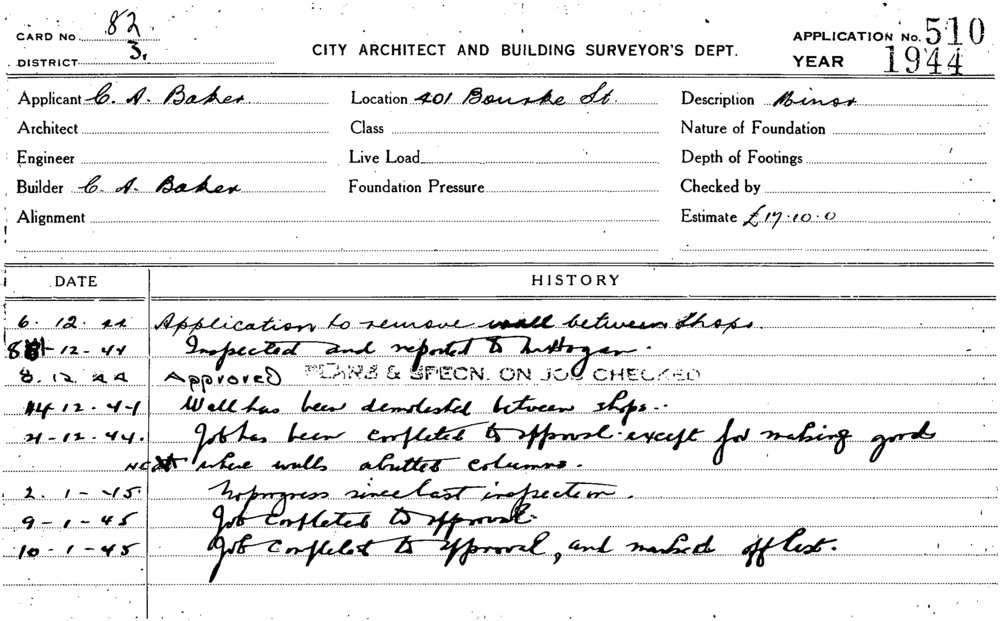 CARD No 82
DISTRICT 3.
CITY ARCHITECT AND BUILDING SURVEYOR'S DEPT.
APPLICATION No. 510
YEAR 1944
Applicant C. A. Baker Location 401 Bourke St. Description Minor
Architect Class Nature of Foundation
Engineer Live Load Depth of Footings
Builder C. A. Baker Foundation Pressure Checked by
Alignment Estimate £17.10.0
DATE HISTORY
6. 12. 44 Application to remove wall between shops.
8-12-44 Inspected and reported to Mr Hogan.
8. 12 44 Approved PLANS & SPECN. ON JOB CHECKED
14 12. 44 Wall has been demolished between shops.
21-12-44. Job has been completed to approval except for making good
where walls abutted columns.
2. 1-45 No progress since last inspection.
9-1-45 Job completed to approval.
10-1-45 Job completed to approval, and marked off list.